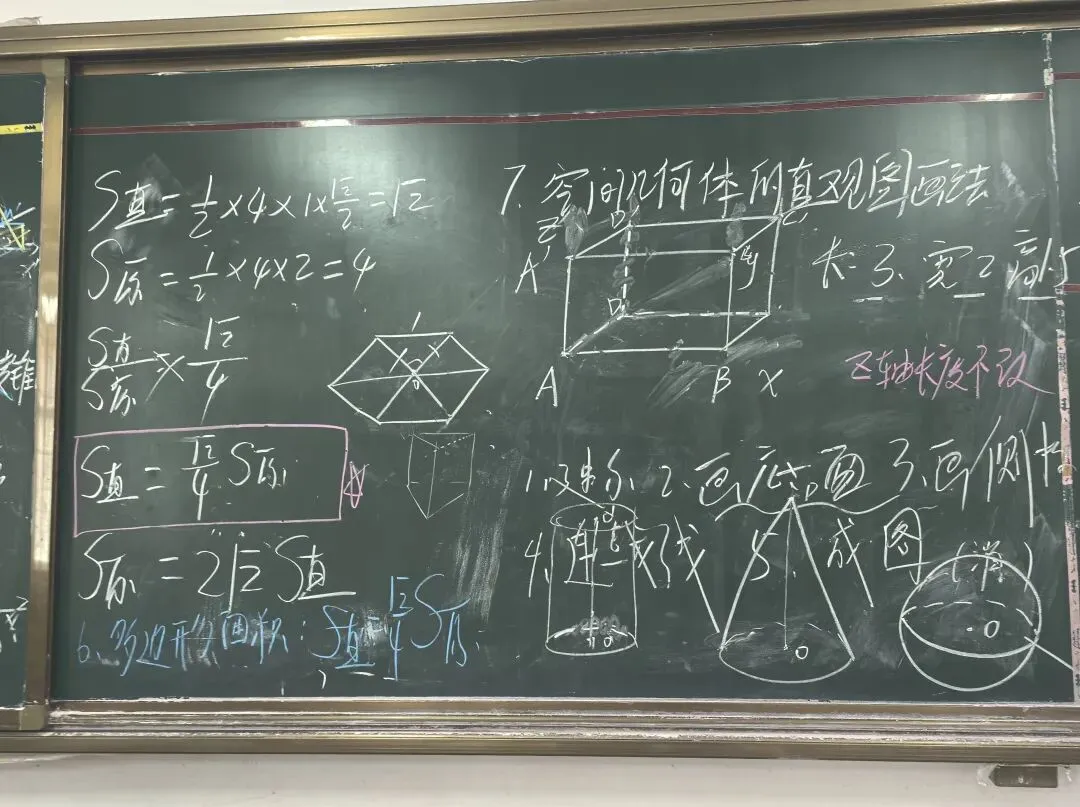 S直 = 1/2 × 4 × 1 × √2/2 = √2
S原 = 1/2 × 4 × 2 = 4
S直/S原 √2/4
S直 = √2/4 S原
S原 = 2√2 S直
6、多边形面积: S直 = √2/4 S原
7. 空间几何体的直观图画法
A'
A B X
长3、宽2、高1.5
Z轴长度不改
2、画底面 3、画侧棱
4、连线 5、成图
O O O